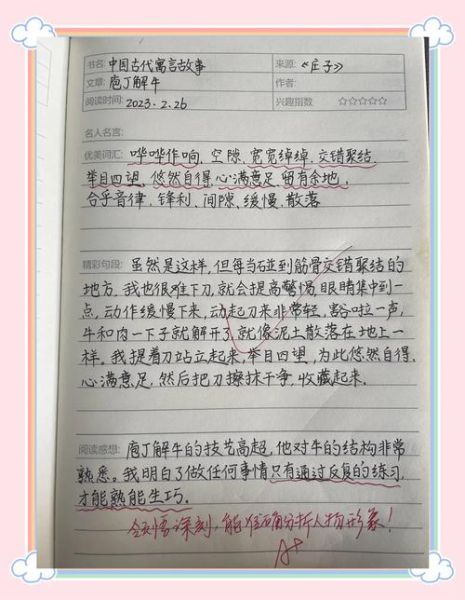 书名: 中国古代寓言故事 来源: 《庄子》
文章: 庖丁解牛 作者:
阅读时间: 2023.2.26 兴趣指数 ☆☆☆☆☆
名人名言:
优美词汇: 哗哗作响、空隙、宽宽绰绰、交错聚结、
举目四望、悠然自得、心满意足、留有余地、
合乎音律、锋利、间隙、缓慢、散落
精彩句段: 虽然是这样,但每当碰到筋骨交错聚结的
地方,我也很难下刀,就会提高警惕,眼睛集中到一
点,动作缓慢下来,动起刀来非常轻,豁啦一声,
牛和肉一下子就解开了,就像泥土散落在地上一
样。我提着刀站立起来,举目四望,为此悠然自得、
心满意足,然后把刀擦抹干争,收藏起来。
阅读感想: 庖丁解牛的技艺高超,他对牛的结构非常
熟悉。我明白了做任何事情只有通过反复的练习,
才能熟能生巧。
领悟深刻,能准确分析人物形象!
A+